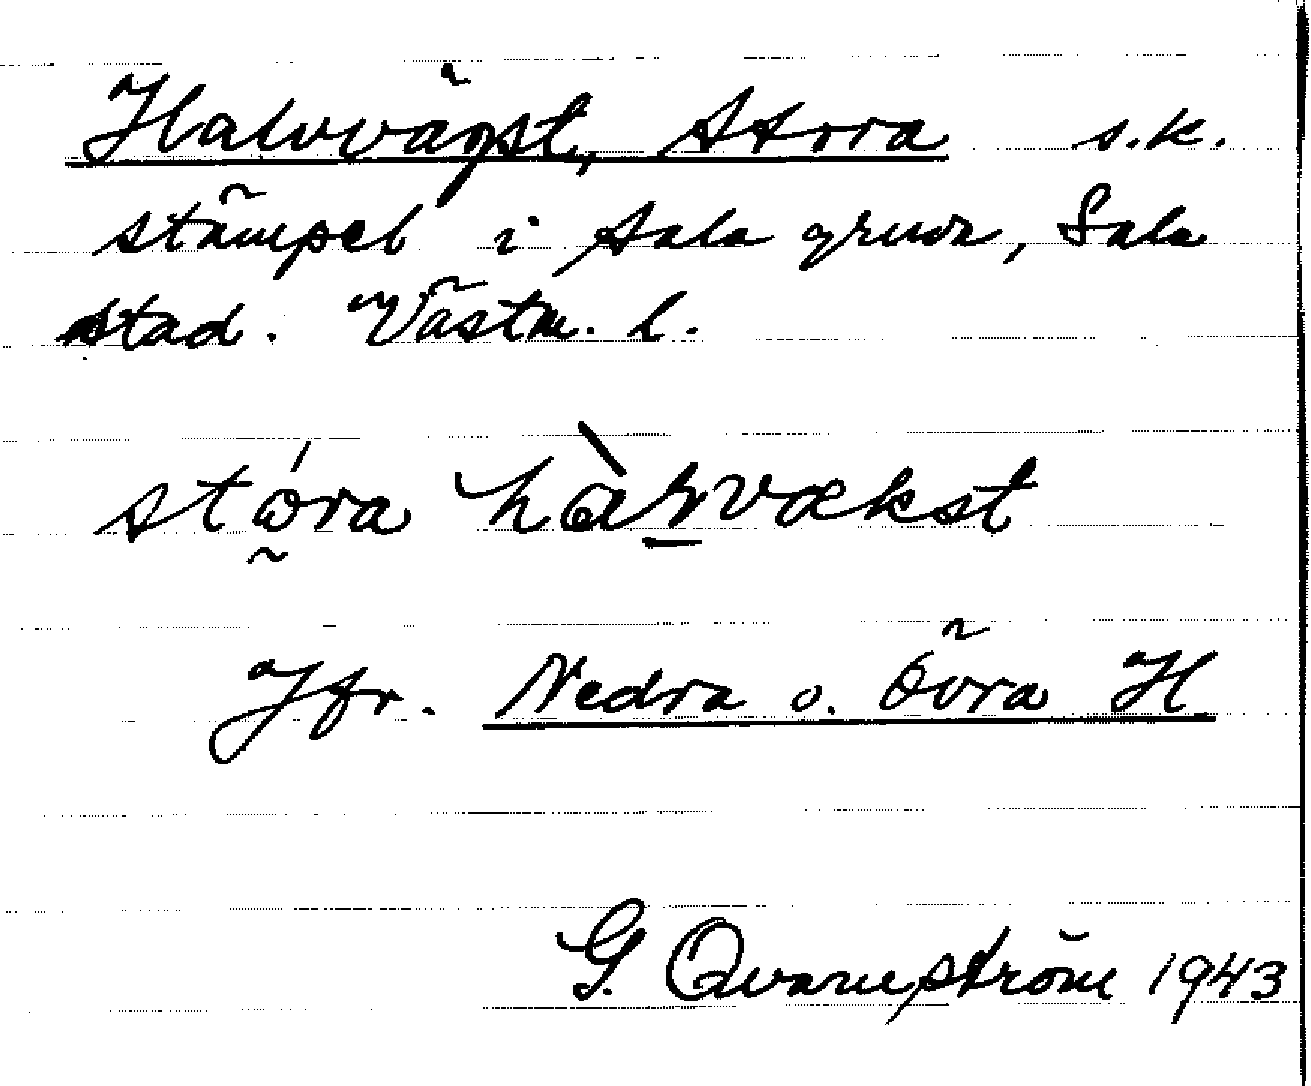 Halvvägst, Stora s.k.
stämpel i Sala gruva, Sala
stad. Västm. l.
stó̰ra hàl̠vækst
Jfr. Nedra o. Övra H.
G. Qvarnström 1943